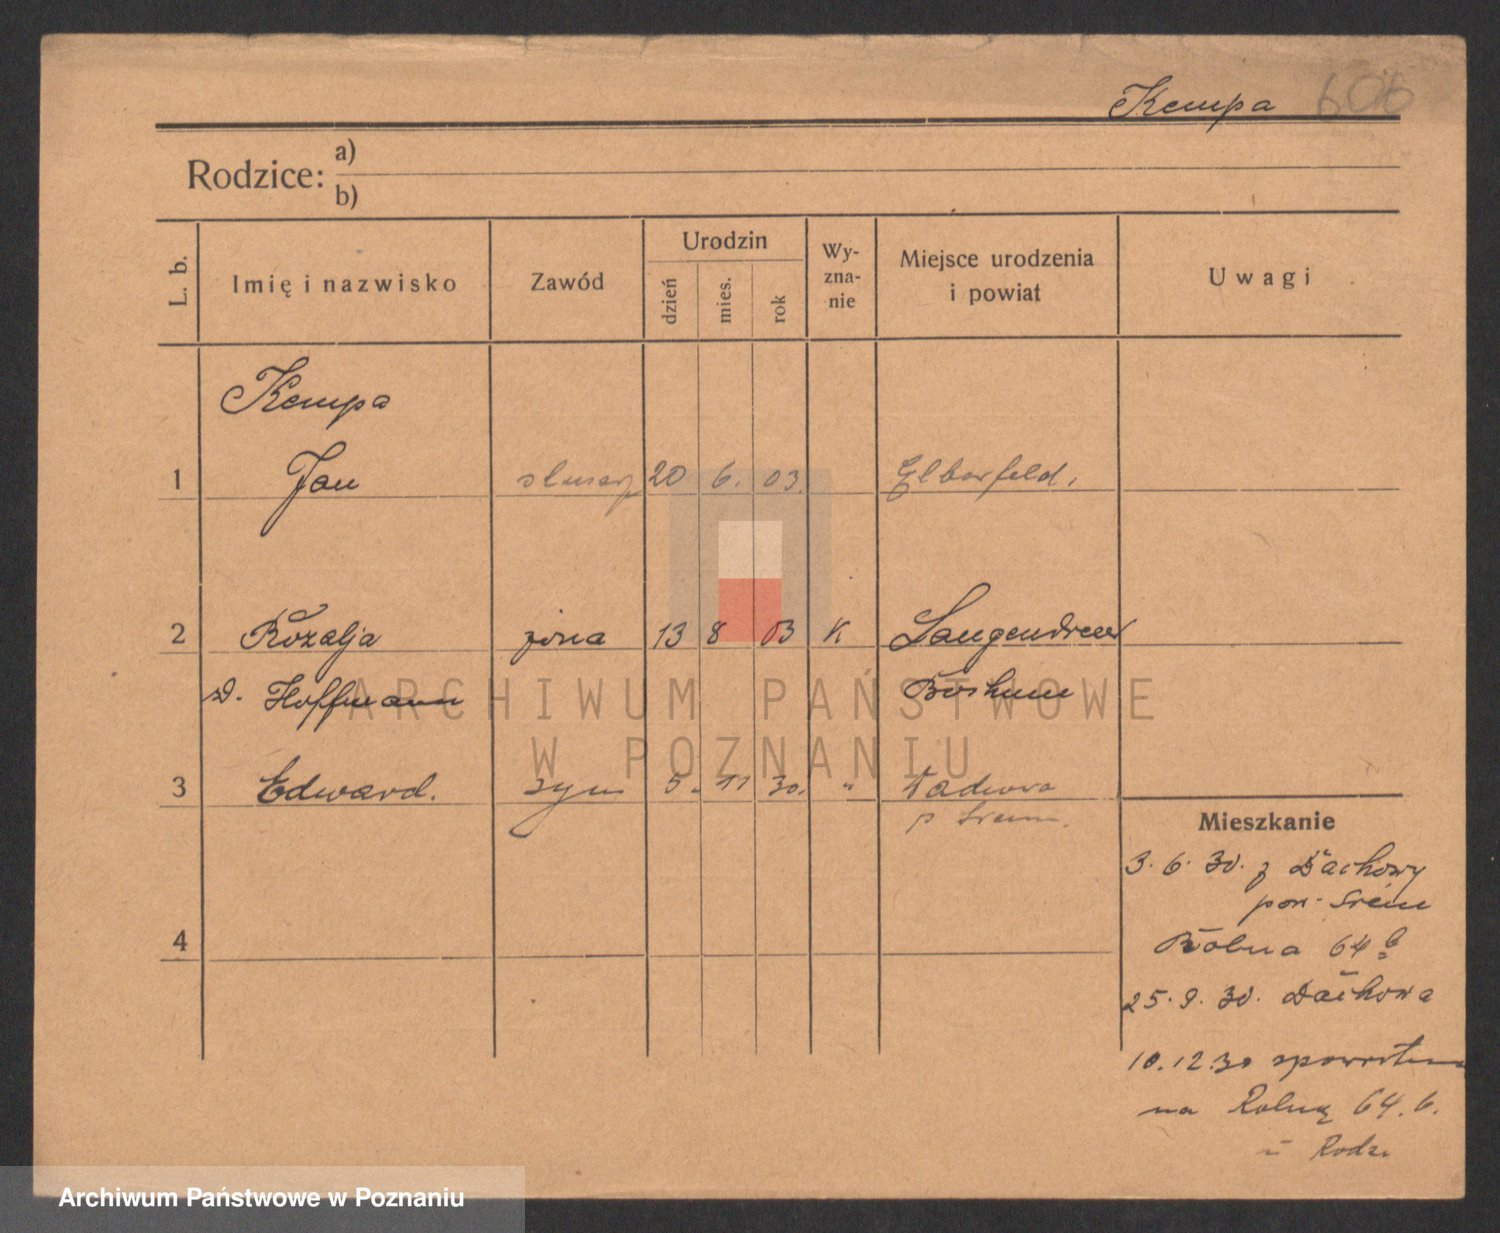 Kempa 606
Rodzice: a)
b)
L. b. Imię i nazwisko Zawód Urodzin dzień mies. rok Wy-zna-nie Miejsce urodzenia i powiat Uwagi
Kempa
1 Jan ślusarz 20 6. 03. Elberfeld.
2 Rozalja żona 13 8 03 K Langendreer
d. Hoffmann Bochum
3 Edward. syn 5. 11 30. "
p Śrem.
Mieszkanie
3. 6. 30. z Dachowy
pow. Śrem
Rolna 64 b
4
25. 9. 30. Dachowa
10. 12. 30 spowrotem
na Rolną 64. b.
u Rodz
ARCHIWUM PAŃSTWOWE
W POZNANIU
Archiwum Państwowe w Poznaniu